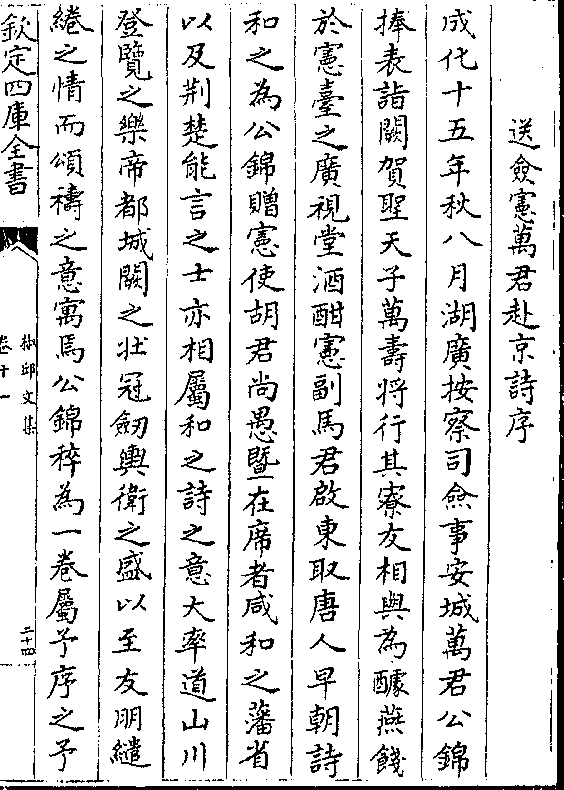 送僉憲萬君赴京詩序
成化十五年秋八月湖廣按察司僉事安城萬君公錦
捧表詣闕賀聖天子萬壽将行其寮友相與為醵燕餞
於憲臺之廣視堂酒酣憲副馬君啟東取唐人早朝詩
和之為公錦贈憲使胡君尚愚暨在席者咸和之藩省
以及荆楚能言之士亦相屬和之詩之意大率道山川
登覽之樂帝都城闕之壯冠劒輿衛之盛以至友朋繾
綣之情而頌禱之意寓焉公錦稡為一卷屬予序之予
欽定四庫全書
椒邱文集
卷十一
二十四